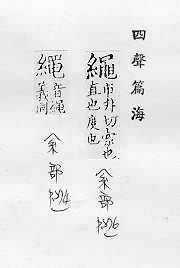 四聲篇海
繩
市升切索也
直也度也
糸部
音繩
義同
糸部